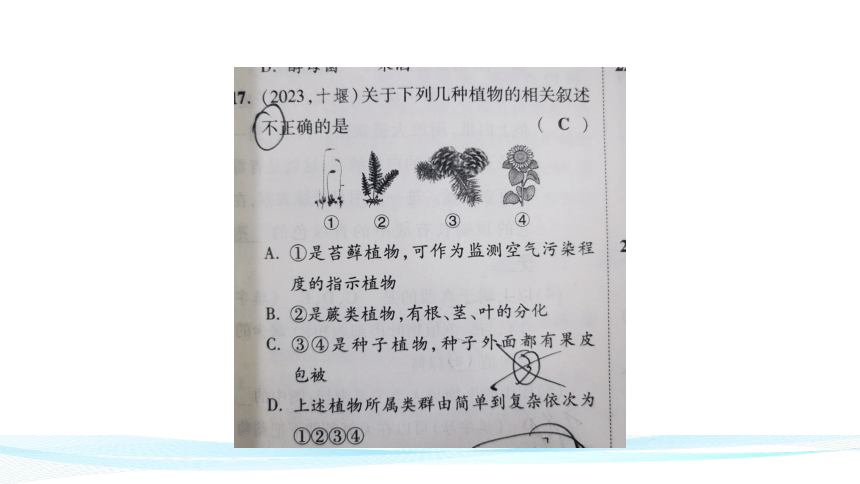 D. 酵母菌
17. (2023,十堰)关于下列几种植物的相关叙述
不正确的是 ( C )
① ② ③ ④
A. ①是苔藓植物,可作为监测空气污染程
度的指示植物
B. ②是蕨类植物,有根、茎、叶的分化
C. ③④是种子植物,种子外面都有果皮
包被
③
D. 上述植物所属类群由简单到复杂依次为
①②③④